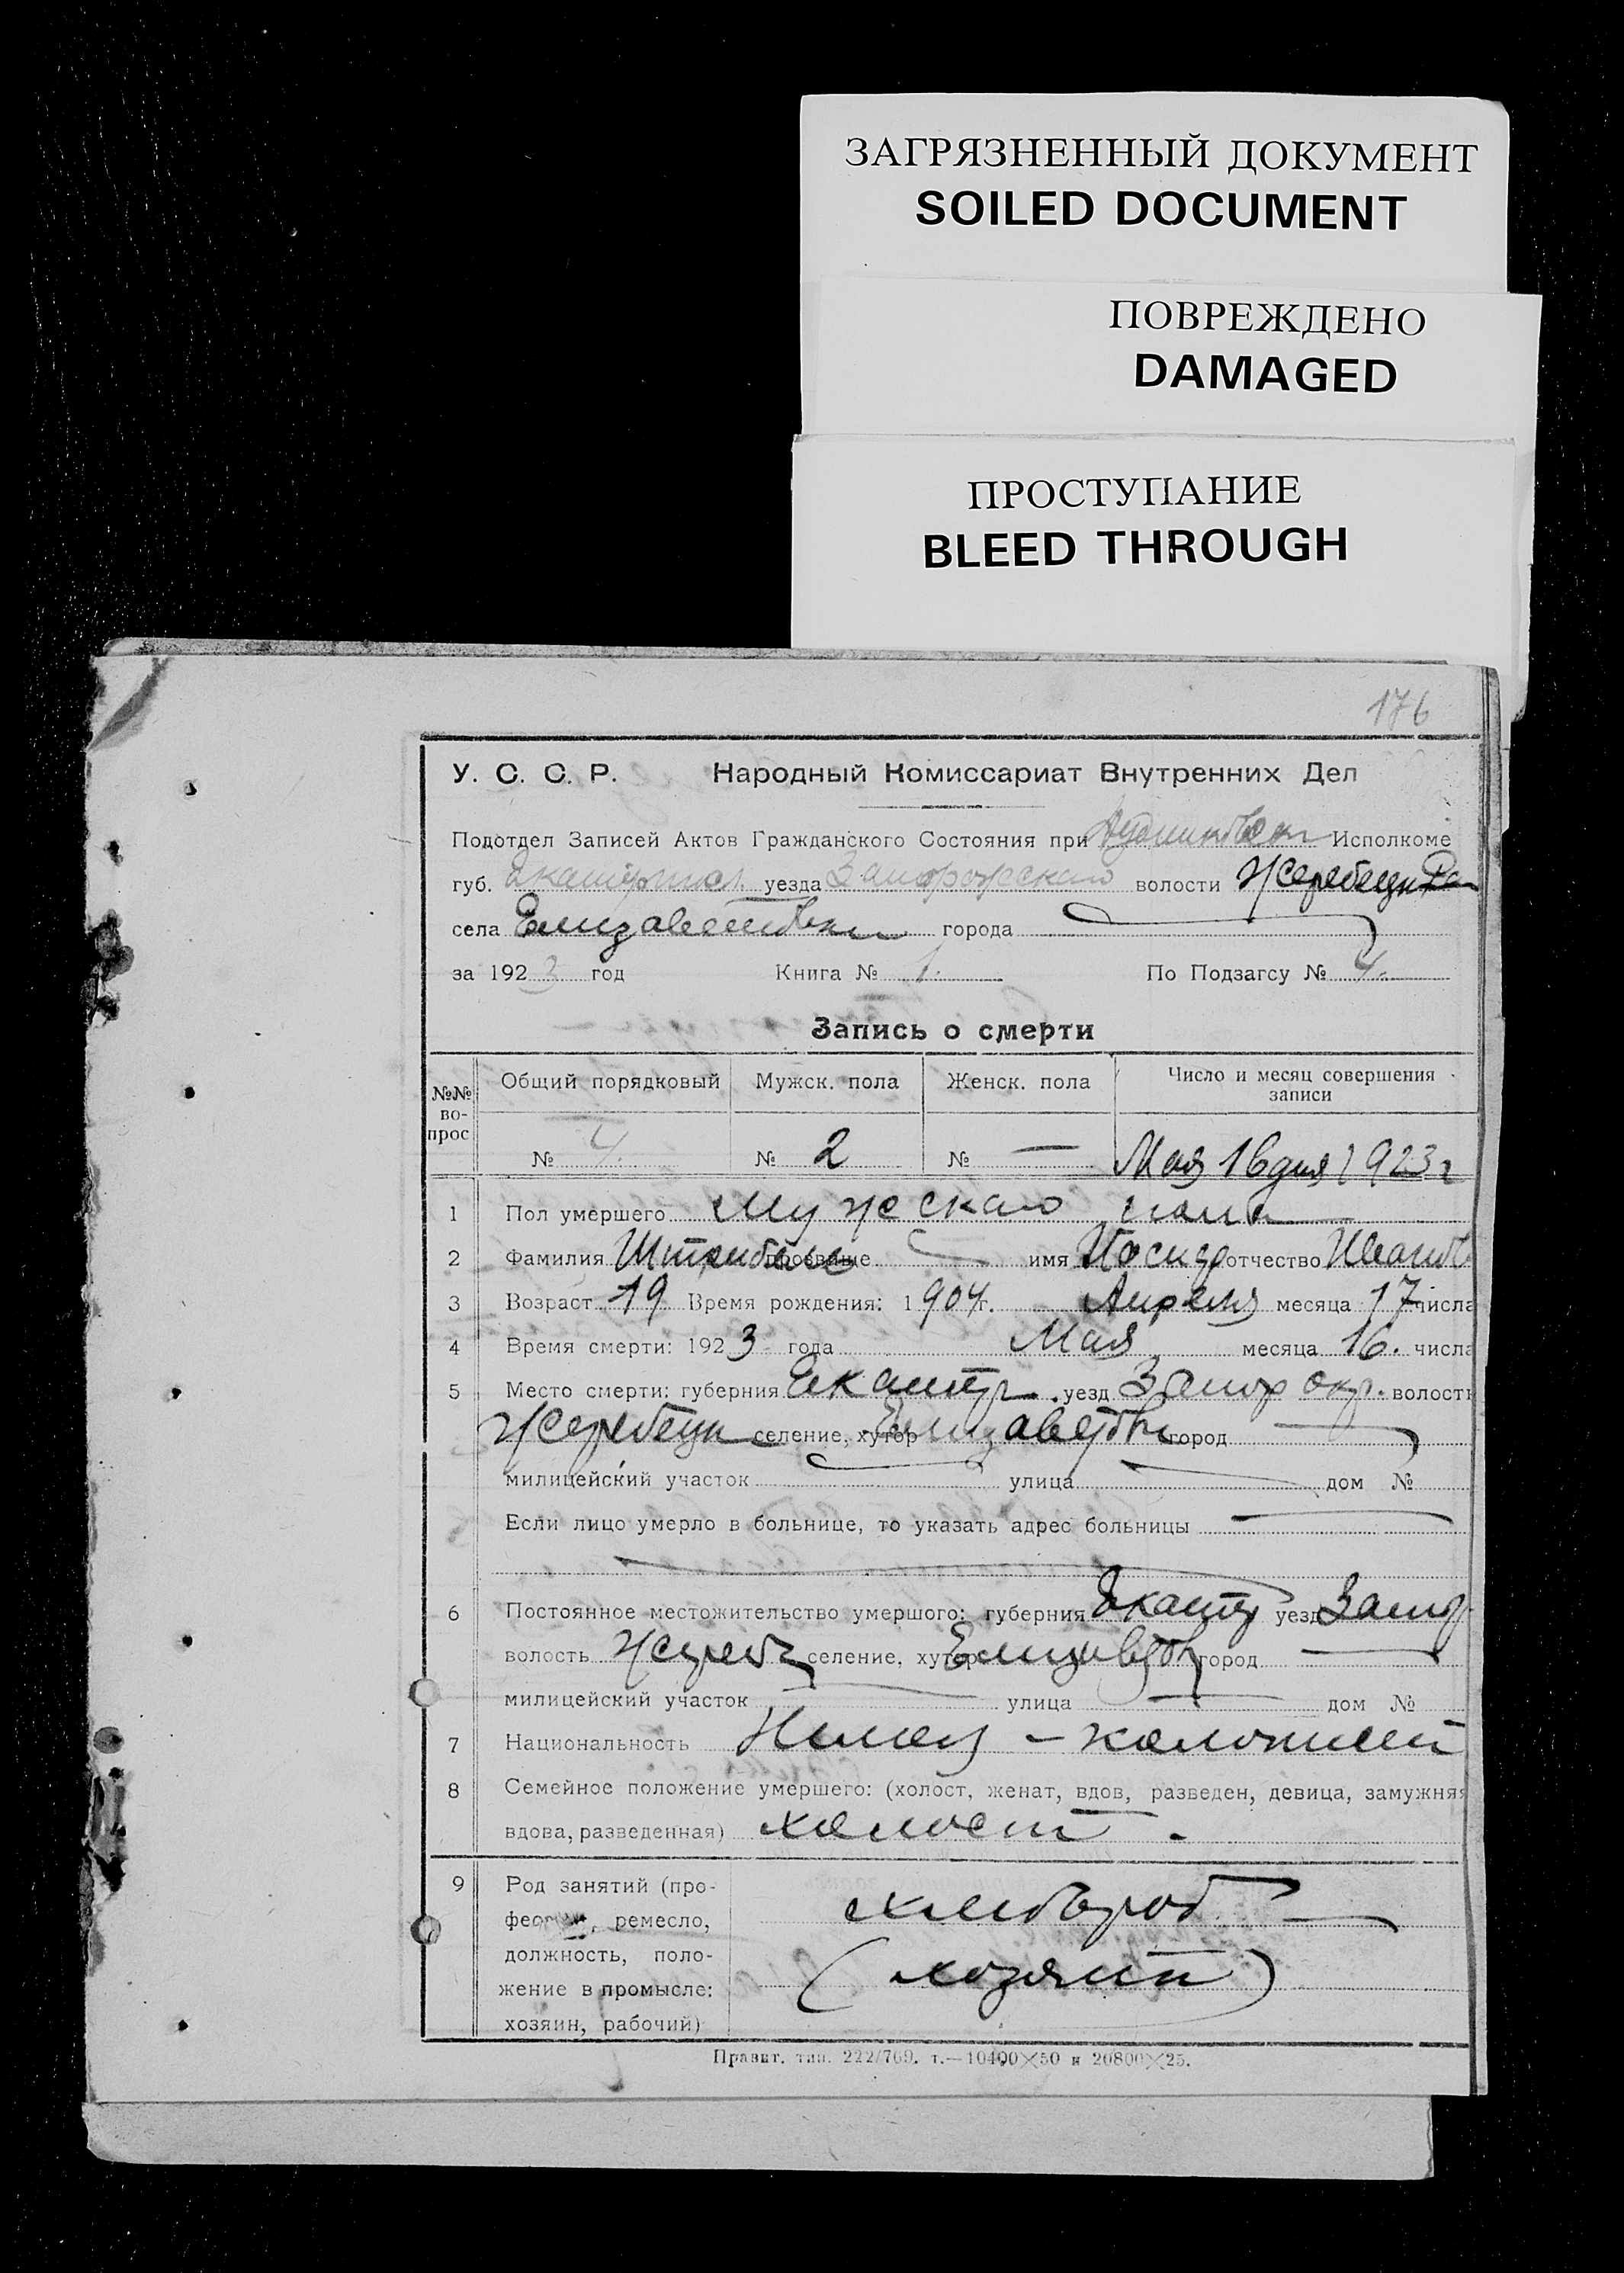 ЗАГРЯЗНЕННЫЙ ДОКУМЕНТ
SOILED DOCUMENT
ПОВРЕЖДЕНО
DAMAGED
ПРОСТУПАНИЕ
BLEED THROUGH
176
У. С. С. Р. Народный Комиссариат Внутренних Дел
Подотдел Записей Актов Гражданского Состояния при Исполкоме
губ. уезда Запорожскаго волости
села Елизаветовки города
за 1923 год Книга № 1. По Подзагсу № 4.
Запись о смерти
№№ во-прос Общий порядковый Мужск. пола Женск. пола Число и месяц совершения записи
№ 4. № 2 № — Мая 16 дня 1923 г
1 Пол умершего Мужескаго пола
2 Фамилия прозвище имя Иосиф отчество
3 Возраст 19 Время рождения: 1904 г. Апреля месяца 17 числа
4 Время смерти: 1923 года Мая месяца 16. числа
5 Место смерти: губерния уезд Запор окр. волость
Жеребецк селение, хутор город
милицейский участок улица дом №
Если лицо умерло в больнице, то указать адрес больницы
6 Постоянное местожительство умершого: губерния уезд Запор
волость селение, хутор город
милицейский участок улица дом №
7 Национальность Немец – колонист
8 Семейное положение умершего: (холост, женат, вдов, разведен, девица, замужняя
вдова, разведенная) холост.
9 Род занятий (про- хлебороб
ремесло,
должность, поло- (хозяин)
жение в промысле:
хозяин, рабочий)
Правит. тип. 222/769. т.—10400×50 и 20800×25.